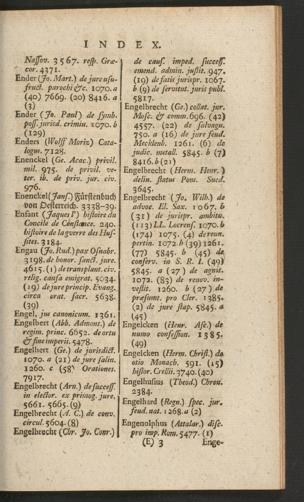 INDEX.
Nassov. 3567. resp. Græ-
cor. 4371.
Ender (Jo. Mart.) de jure usu-
fruct. parochi &c. 1070. a
(40) 7669. (20) 8416. a
(3)
Ender (Jo. Paul) de symb.
poss. jurisd. crimin. 1070. b
(129)
Enders (Wolff Moriz) Cata-
logue. 7128.
Enenckel (Ge. Acac.) privil.
mil. 975. de privil. ve-
ter. ib. de priv. jur. civ.
976.
Enenckel (Jans) Fürstenbuch
von Oesterreich. 3338-39.
Enfant (Jaques l') histoire du
Concile de Constance. 240.
histoire de la guerre des Hus-
sites. 3184.
Engau (Jo. Rud.) pax Osnabr.
3198. de honor. sanct. jure.
4615. (1) de transplant. civ.
relig. causa emigrat. 5034.
(19) de jure princip. Evang.
circa urat. sacr. 5638.
(39)
Engel, jus canonicum. 1361.
Engelbert (Abb. Admont.) de
regim. princ. 6652. de ortu
& fine imperii. 5478.
Engelbert (Ge.) de jurisdict.
1070. a (21) de jure salin.
1260. c (58) Orationes.
7917.
Engelbrecht (Arn.) de success.
in elector. ex primog. jure.
5661. 5665. (9)
Engelbrecht (A. C.) de conv.
circul. 5604. (8)
Engelbrecht (Chr. Jo. Conr.)
de caus. imped. success.
emend. admin. justit. 947.
(19) de fatis jurispr. 1067.
b (9) de servitut. juris publ.
5817.
Engelbrecht (Ge.) collat. jur.
Mosc. & comm. 696. (42)
4557. (22) de salvagu.
750. a (16) de jure feud.
Mecklenb. 1261. (6) de
judic. metall. 5845. b (7)
8416. b (21)
Engelbrecht (Herm. Henr.)
delin. status Pom. Suec.
3645.
Engelbrecht (Jo. Wilh.) de
advoc. El. Sax. 1067. b
(31) de jurispr. ambitu.
(113) LL. Locrens. 1070. b
(174) 1075. (4) de renn.
pertin. 1072. b (39) 1261.
(77) 5845. b (45) de
conserv. in S. R. I. (49)
5845. a (27) de agnit.
1072. (83) de renov. in-
vestit. 1260. b (27) de
præsumt. pro Cler. 1385.
(2) de jure stap. 5845. a
(45)
Engelcken (Henr. Asc.) de
numo confession. 1385.
(49)
Engelcken (Herm. Christ.) de
otio Monach. 591. (15)
histor. Crellii. 3740. (40)
Engelhusius (Theod.) Chron.
2384.
Engelhard (Regn.) spec. jur.
feud. nat. 1268. a (2)
Engenolphus (Attalar.) disc.
pro imp. Rom. 5477. (1)
(E) 3
Enge-